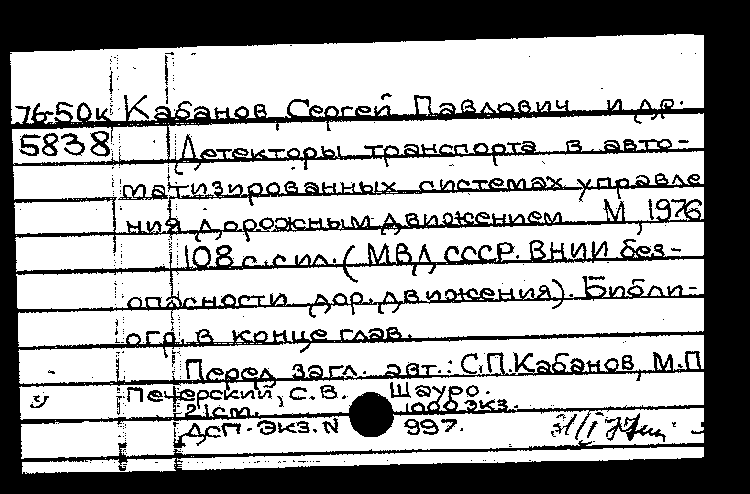 76-50к Кабанов, Сергей Павлович и др.
5838 Детекторы транспорта в авто-
матизированных системах управле
ния дорожным движением М, 1976
108 с. с ил. (МВД СССР. ВНИИ без-
опасности дор. движения). Библи-
огр. в конце глав.
Перед загл. авт.: С.П.Кабанов, М.П
Печерский, С.В. Шауро.
21см. 1000 экз.
ДСП-экз. N 997.